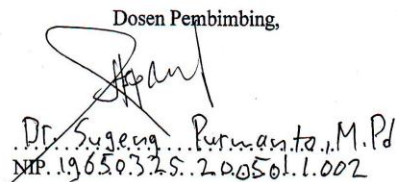 Dosen Pembimbing,
Dr. Sugeng Purwanto, M.Pd
NIP. 19650325.200501.1.002